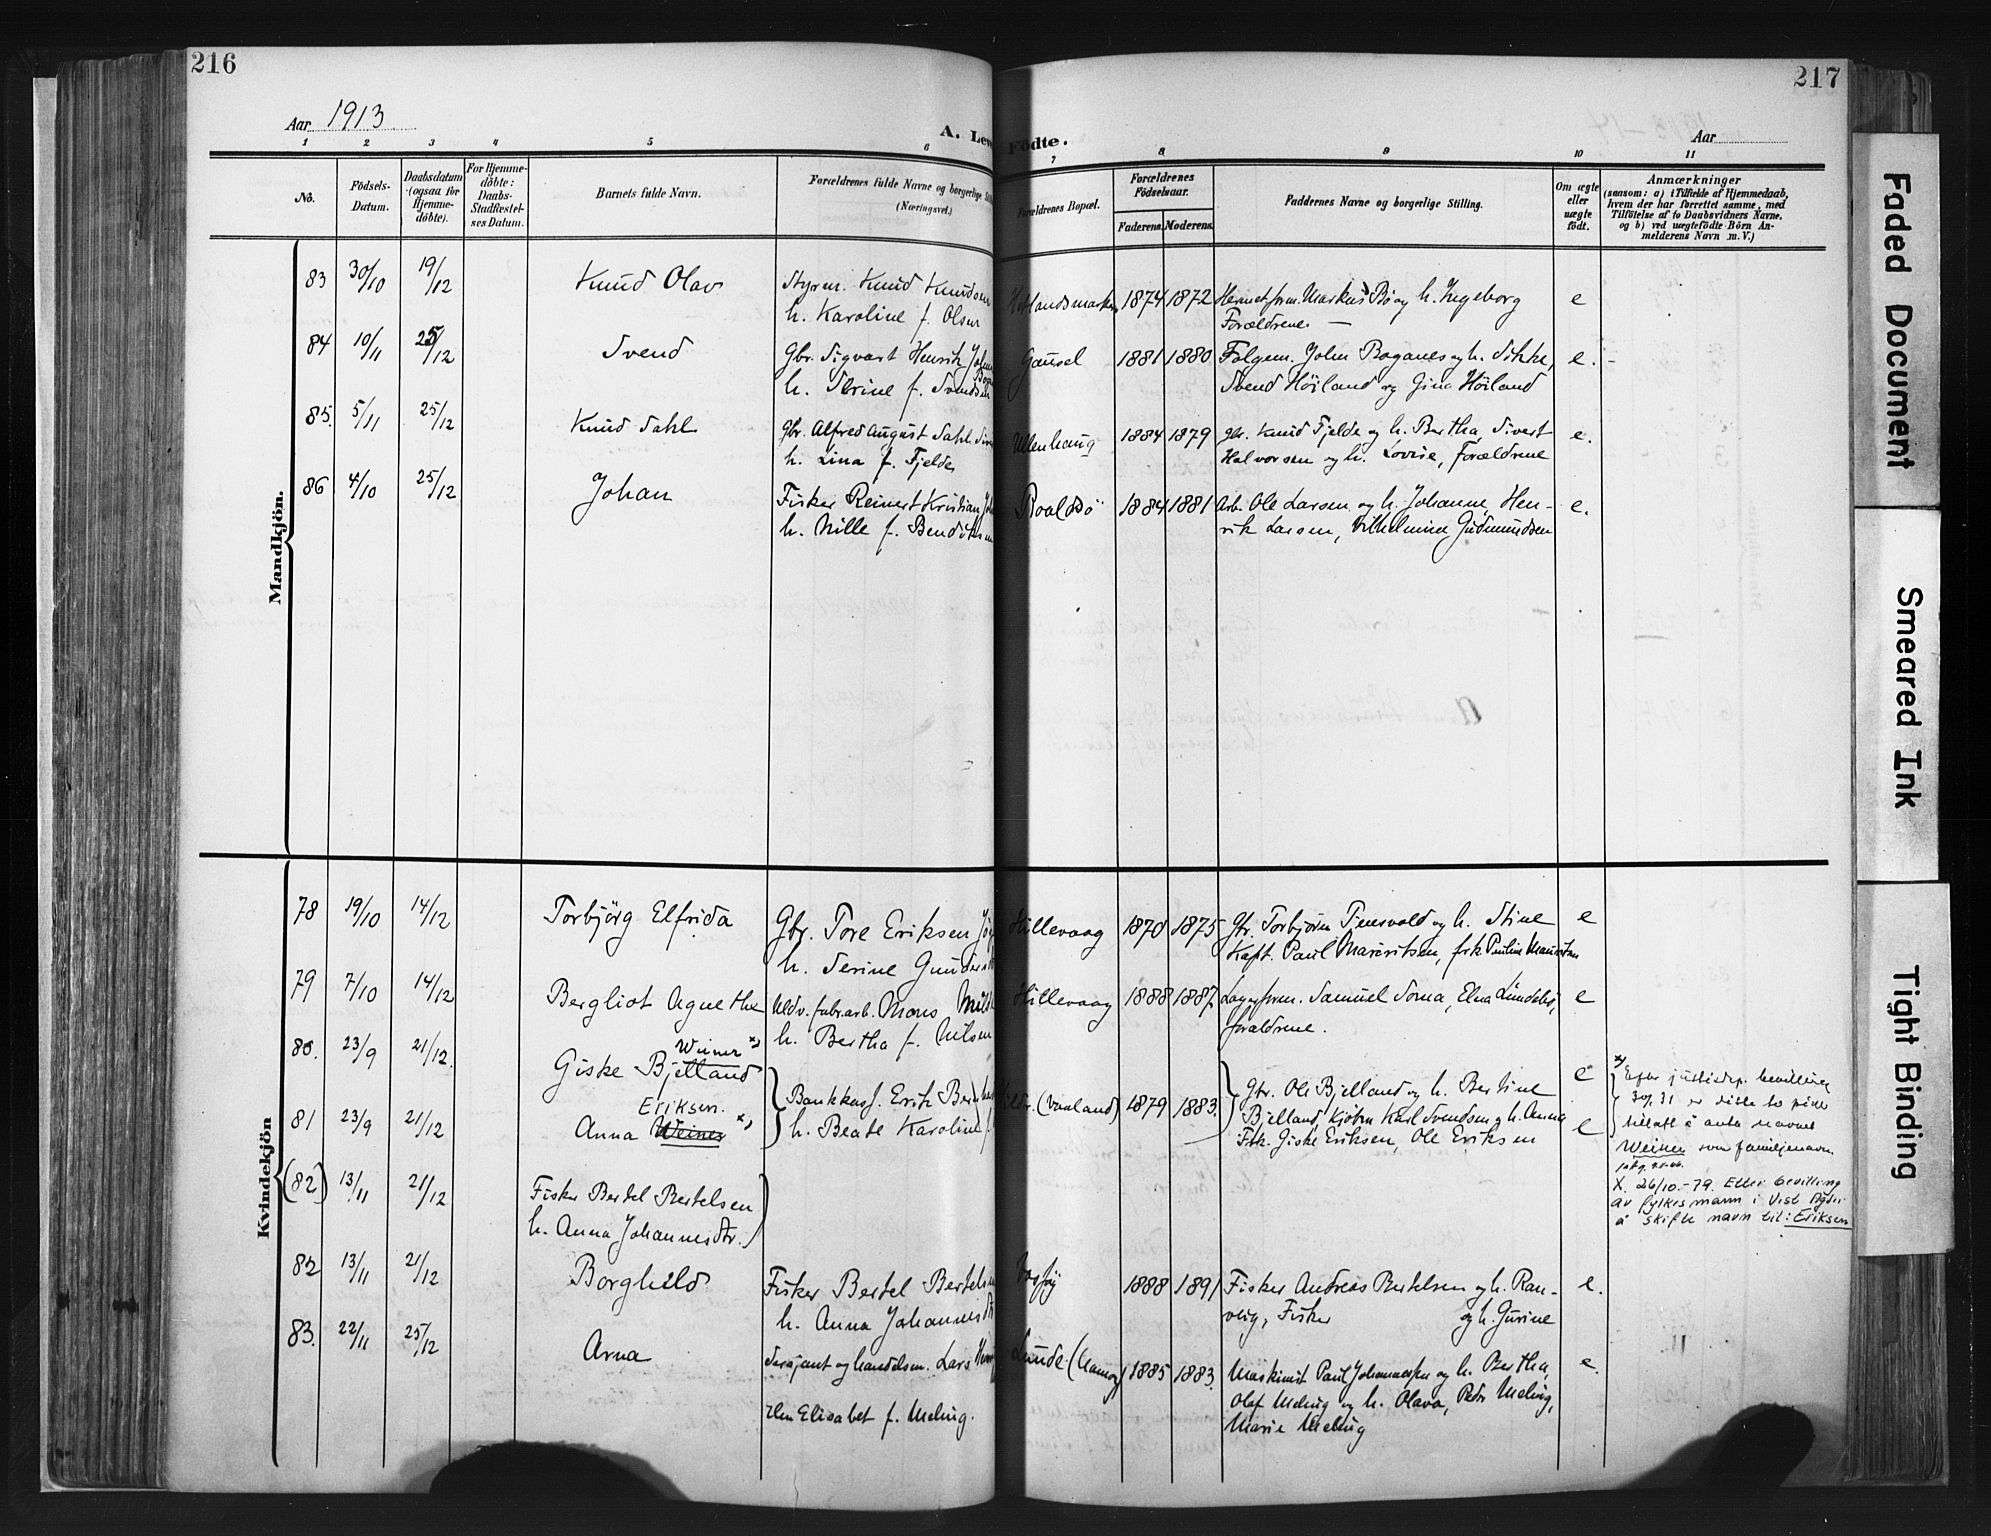 216
217
Aar 1913
A. Lev Födte.
Aar
1 2 3 4 5 6 7 8 9 10 11
No.
Födsels-
Datum.
Daabsdatum
(ogsaa for
Hjemme-
döbte).
For Hjemme-
döbte:
Daabs-
Stadfæstel-
ses Datum.
Barnets fulde Navn.
Forældrenes fulde Navne og borgerlige Stil
(Næringsvei.)
Forældrenes Bopæl.
Forældrenes
Födselsaar.
Faderens. Moderens.
Faddernes Navne og borgerlige Stilling.
Om ægte
eller
uægte
födt.
Anmærkninger
(saasom: a) i Tilfælde af Hjemmedaab,
hvem der har forrettet samme, med
Tilföielse af to Daabsvidners Navne.
og b) ved uægtefödte Börn An-
melderens Navn m. V.)
Mandkjön.
83 30/10 19/12 Knud Olav Styrm. Knud Knudsen 1874 1872 Markus Bö og h. Ingeborg e
h. Karoline f. Olsen Forældrene.
84 10/11 25/12 Svend Gbr. Sigvart Henrik Gausel 1881 1880 John Boganes og h. Sikke, e.
h. Serine f. Svendsen Svend Höiland og Gina Höiland
85. 5/11 25/12 Knud Dahl Gbr. Alfred August Dahl Ullenhaug 1884 1879 Gbr. Knud Fjelde og h. Bertha, Sivert e.
h. Lina f. Fjelde Halvorsen og h. Lovise, forældrene
86 4/10 25/12 Johan Fisker Reinert Kristian Roaldsö 1884 1881 Arb. Ole Larsen og h. Johanne, Hen- e.
h. Nille f. Bendiksen rik Larsen, Vilhelmine Gudmundsen
Kvindekjön
78 19/10 14/12 Torbjörg Elfrida Gbr. Tore Eriksen Hillevaag 1870 1875 Gbr. Torbjörn Tjensvold og h. Stine e
h. Serine Kapt. Paul Mauritsen, frk Pauline Mauritsen
79 7/10 14/12 Bergliot Agnethe Uldv. fabr.arb. Mons Hillevaag 1888 1887. Lagerform. Samuel Soma, Elna e
h. Bertha f. Nilsen forældrene.
80. 23/9 21/12. Giske Bjelland Weiner x) e
81 23/9 21/12 Anna Weiner Eriksen. x) Bankkass. Erik (Vaaland) 1879 1883. Gbr. Ole Bjelland og h. Bertine e
h. Beate Karoline Bjelland, Kjöbm Karl Svendsen og h. Anna
Frk. Giske Eriksen, Ole Eriksen
x) Efter justisdep. bevilling
er disse to piker
tillatt å anta navnet
Weiner som familjenavn.
X. 26/10.-79. Etter bevilling
av fylkesmann i Vest Agder
å skifte navn til: Eriksen
(82) 13/11 21/12 Fisker Bertel Bertelsen
h. Anna Johannesdtr.)
82 13/11 21/12 Borghild Fisker Bertel Bertelsen 1888 1891 Fisker Andreas Bertelsen og h. Ran- e.
h. Anna Johannesdtr veig, Fisker og h. Gurine
83. 22/11 25/12 Arna Sersjant og handelsm. Lars Lunde 1885 1883. Maskinist Paul Johannessen og h. Bertha, e.
Elen Elisabet f. Meling. Olaf Meling og h. Olava, Peder Meling,
Marie Meling
Faded Document
Smeared Ink
Tight Binding